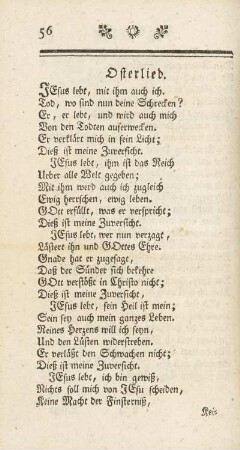 56
Osterlied.
JEsus lebt, mit ihm auch ich.
Tod, wo sind nun deine Schrecken?
Er, er lebt, und wird auch mich
Von den Todten auferwecken.
Er verklärt mich in sein Licht;
Dieß ist meine Zuversicht.
JEsus lebt, ihm ist das Reich
Ueber alle Welt gegeben;
Mit ihm werd auch ich zugleich
Ewig herrschen, ewig leben.
GOtt erfüllt, was er verspricht;
Dieß ist meine Zuversicht.
JEsus lebt, wer nun verzagt,
Lästert ihn und GOttes Ehre.
Gnade hat er zugesagt,
Daß der Sünder sich bekehre
GOtt verstößt in Christo nicht;
Dieß ist meine Zuversicht,
JEsus lebt, sein Heil ist mein;
Sein sey auch mein ganzes Leben.
Reines Herzens will ich seyn,
Und den Lüsten widerstreben.
Er verläßt den Schwachen nicht;
Dieß ist meine Zuversicht.
JEsus lebt, ich bin gewiß,
Nichts soll mich von JEsu scheiden,
Keine Macht der Finsterniß,
Kei=